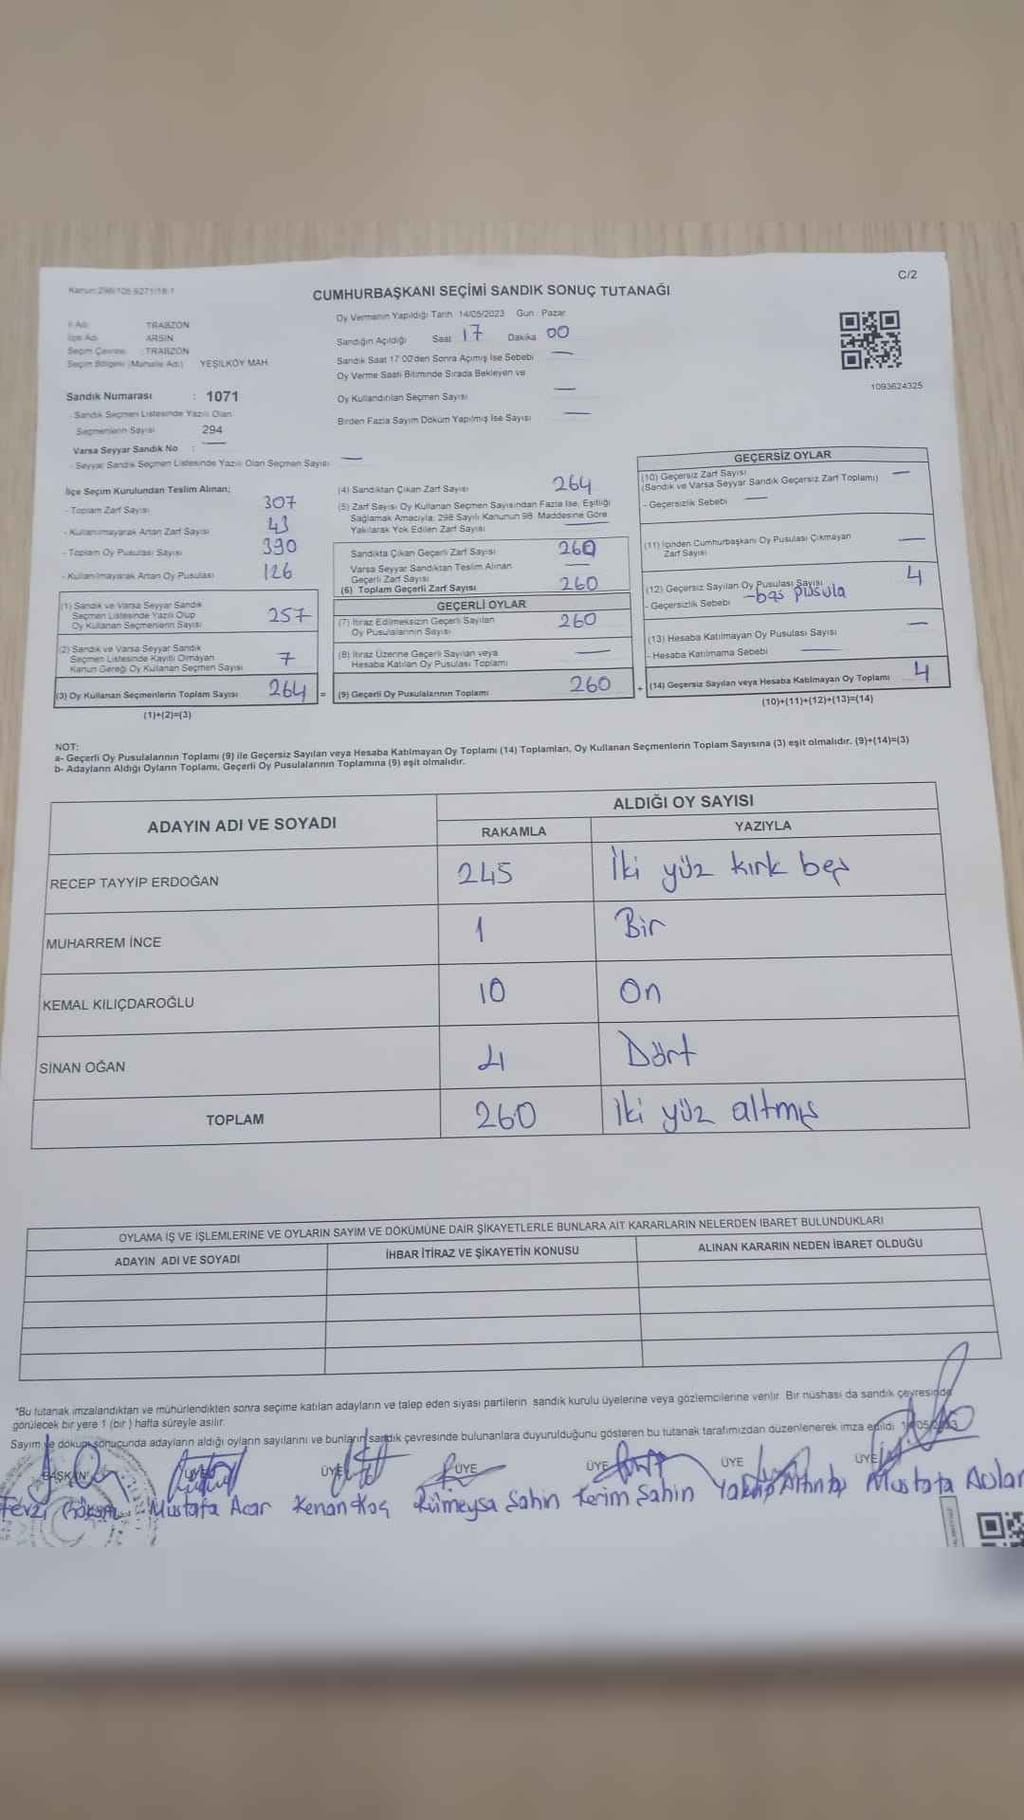 C/2
Kanun:298/105 6271/18-1
CUMHURBAŞKANI SEÇİMİ SANDIK SONUÇ TUTANAĞI
İl Adı TRABZON
İlçe Adı ARSİN
Seçim Çevresi :TRABZON
Seçim Bölgesi (Mahalle Adı) YEŞİLKÖY MAH.
Sandık Numarası : 1071
- Sandık Seçmen Listesinde Yazılı Olan
Seçmenlerin Sayısı 294
Varsa Seyyar Sandık No :
- Seyyar Sandık Seçmen Listesinde Yazılı Olan Seçmen Sayısı
Oy Vermenin Yapıldığı Tarih 14/05/2023 Gün : Pazar
Sandığın Açıldığı Saat 17 Dakika 00
Sandık Saat 17:00'den Sonra Açılmış İse Sebebi —
Oy Verme Saati Bitiminde Sırada Bekleyen ve
Oy Kullandırılan Seçmen Sayısı —
Birden Fazla Sayım Döküm Yapılmış İse Sayısı —
1093624325
İlçe Seçim Kurulundan Teslim Alınan;
- Toplam Zarf Sayısı 307
- Kullanılmayarak Artan Zarf Sayısı 43
- Toplam Oy Pusulası Sayısı 390
- Kullanılmayarak Artan Oy Pusulası 126
(1) Sandık ve Varsa Seyyar Sandık
Seçmen Listesinde Yazılı Olup
Oy Kullanan Seçmenlerin Sayısı 257
(2) Sandık ve Varsa Seyyar Sandık
Seçmen Listesinde Kayıtlı Olmayan
Kanun Gereği Oy Kullanan Seçmen Sayısı 7
(3) Oy Kullanan Seçmenlerin Toplam Sayısı 264 =
(1)+(2)=(3)
(4) Sandıktan Çıkan Zarf Sayısı 264
(5) Zarf Sayısı Oy Kullanan Seçmen Sayısından Fazla İse, Eşitliği
Sağlamak Amacıyla, 298 Sayılı Kanunun 98. Maddesine Göre
Yakılarak Yok Edilen Zarf Sayısı —
Sandıkta Çıkan Geçerli Zarf Sayısı 260
Varsa Seyyar Sandıktan Teslim Alınan
Geçerli Zarf Sayısı —
(6) Toplam Geçerli Zarf Sayısı 260
GEÇERLİ OYLAR
(7) İtiraz Edilmeksizin Geçerli Sayılan
Oy Pusulalarının Sayısı 260
(8) İtiraz Üzerine Geçerli Sayılan veya
Hesaba Katılan Oy Pusulası Toplamı —
(9) Geçerli Oy Pusulalarının Toplamı 260 +
GEÇERSİZ OYLAR
(10) Geçersiz Zarf Sayısı —
(Sandık ve Varsa Seyyar Sandık Geçersiz Zarf Toplamı)
- Geçersizlik Sebebi —
(11) İçinden Cumhurbaşkanı Oy Pusulası Çıkmayan
Zarf Sayısı —
(12) Geçersiz Sayılan Oy Pusulası Sayısı 4
- Geçersizlik Sebebi -baş pusula
(13) Hesaba Katılmayan Oy Pusulası Sayısı —
- Hesaba Katılmama Sebebi —
(14) Geçersiz Sayılan veya Hesaba Katılmayan Oy Toplamı 4
(10)+(11)+(12)+(13)=(14)
NOT:
a- Geçerli Oy Pusulalarının Toplamı (9) ile Geçersiz Sayılan veya Hesaba Katılmayan Oy Toplamı (14) Toplamları, Oy Kullanan Seçmenlerin Toplam Sayısına (3) eşit olmalıdır. (9)+(14)=(3)
b- Adayların Aldığı Oyların Toplamı, Geçerli Oy Pusulalarının Toplamına (9) eşit olmalıdır.
ADAYIN ADI VE SOYADI
ALDIĞI OY SAYISI
RAKAMLA YAZIYLA
RECEP TAYYİP ERDOĞAN 245 İki yüz kırk beş
MUHARREM İNCE 1 Bir
KEMAL KILIÇDAROĞLU 10 On
SİNAN OĞAN 4 Dört
TOPLAM 260 İki yüz altmış
OYLAMA İŞ VE İŞLEMLERİNE VE OYLARIN SAYIM VE DÖKÜMÜNE DAİR ŞİKAYETLERLE BUNLARA AİT KARARLARIN NELERDEN İBARET BULUNDUKLARI
ADAYIN ADI VE SOYADI İHBAR İTİRAZ VE ŞİKAYETİN KONUSU ALINAN KARARIN NEDEN İBARET OLDUĞU
"Bu tutanak imzalandıktan ve mühürlendikten sonra seçime katılan adayların ve talep eden siyasi partilerin sandık kurulu üyelerine veya gözlemcilerine verilir. Bir nüshası da sandık çevresinde
görülecek bir yere 1 (bir ) hafta süreyle asılır.
Sayım ve döküm sonucunda adayların aldığı oyların sayılarını ve bunların sandık çevresinde bulunanlara duyurulduğunu gösteren bu tutanak tarafımızdan düzenlenerek imza edildi.
BAŞKAN ÜYE ÜYE ÜYE ÜYE ÜYE ÜYE
Fevzi Mustafa Acar Kenan Koç Rümeysa Şahin Kerim Şahin Yakup Altıntaş Mustafa